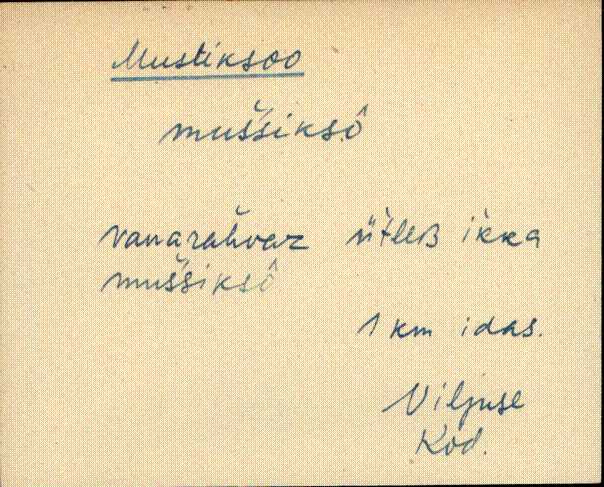 Mustiksoo
mušsiksô
vanarahvaz ütleB ikka
mušsiksô
1 km idas.
Viljuse
Kod.